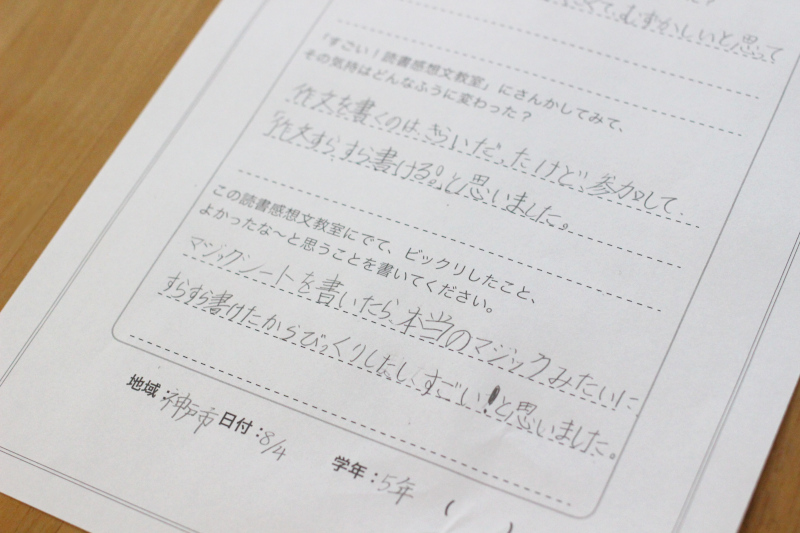 くて、むずかしいと思って
「すごい！読書感想文教室」にさんかしてみて、
その気持はどんなふうに変わった？
作文を書くのは、きらいだったけど、参加して、
作文すらすら書ける。と思いました。
この読書感想文教室にでて、ビックリしたこと、
よかったな～と思うことを書いてください。
マジックシートを書いたら、本当のマジックみたいに、
すらすら書けたからびっくりしたし、すごい!と思いました。
地域：神戸市 日付：8/4
学年：5年 ( )